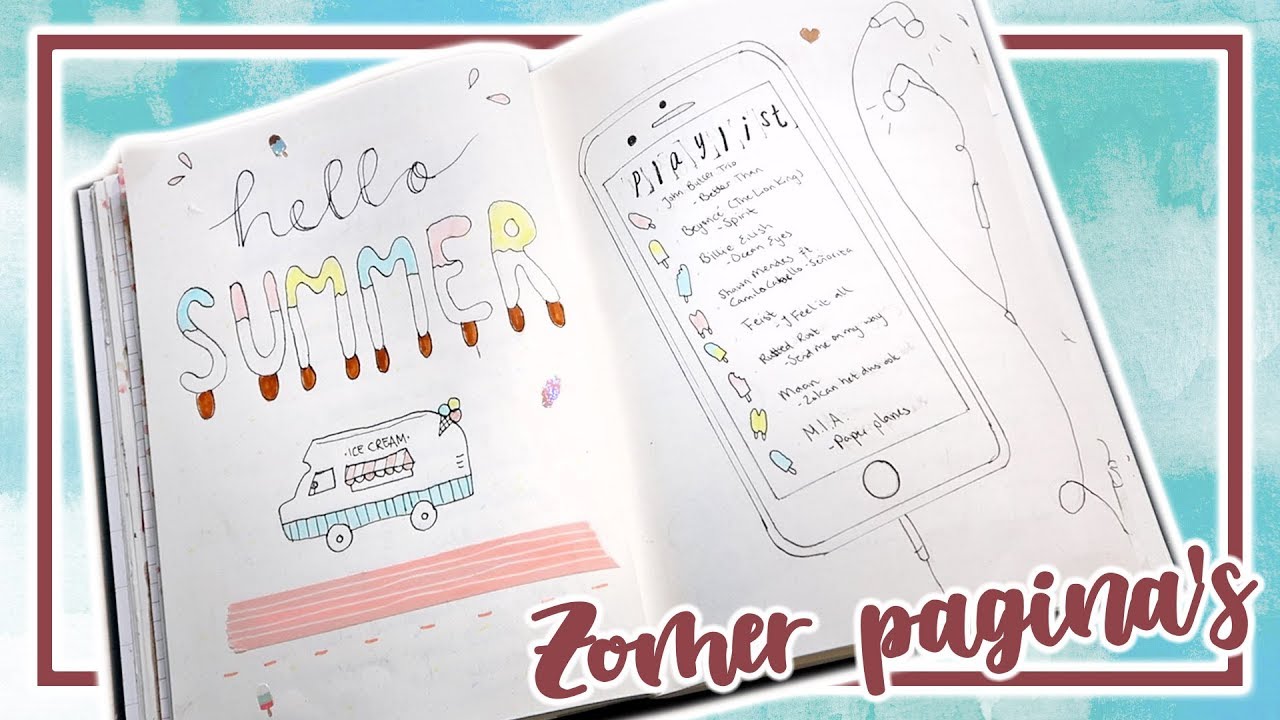 hello
SUMMER
·ICE CREAM·
playlist
John Butler Trio
- Better Than
Beyoncé (The Lion King)
- Spirit
Billie Eilish
- Ocean Eyes
Shawn Mendes ft
Camila Cabello - Señorita
Feist
- I Feel it all
Rusted Root
- Send me on my way
Maan
- Zo kan het dus ook
M.I.A.
- Paper planes
Zomer pagina's